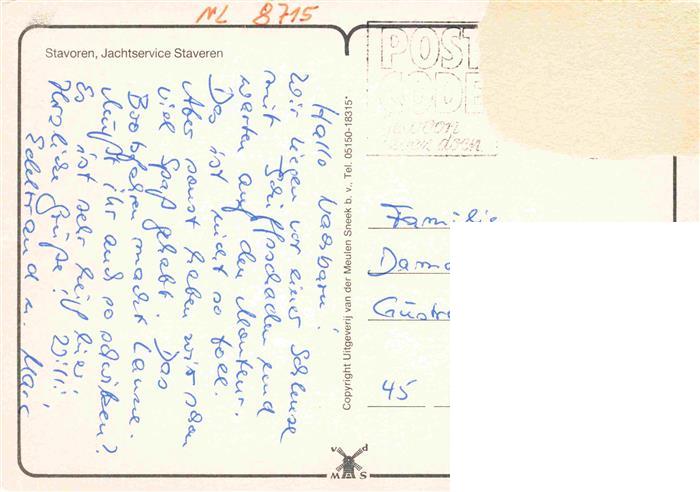 NL 8715
Stavoren, Jachtservice Staveren
Hallo Nachbarn!
Wir liegen vor einer Schleuse
mit Schiffsschaden und
warten auf den Monteur.
Das ist nicht so toll.
Aber sonst haben wir schon
viel Spaß gehabt. Das
Bootfahren macht Laune.
Müßt ihr auch so schwitzen?
Es ist sehr heiß hier.
Herzliche Grüße! Willi
u. Marc
Copyright Uitgeverij van der Meulen Sneek b. v., Tel. 05150-18315*
POST
CODE
gewoon
doen
Familie
45
v d
M A S